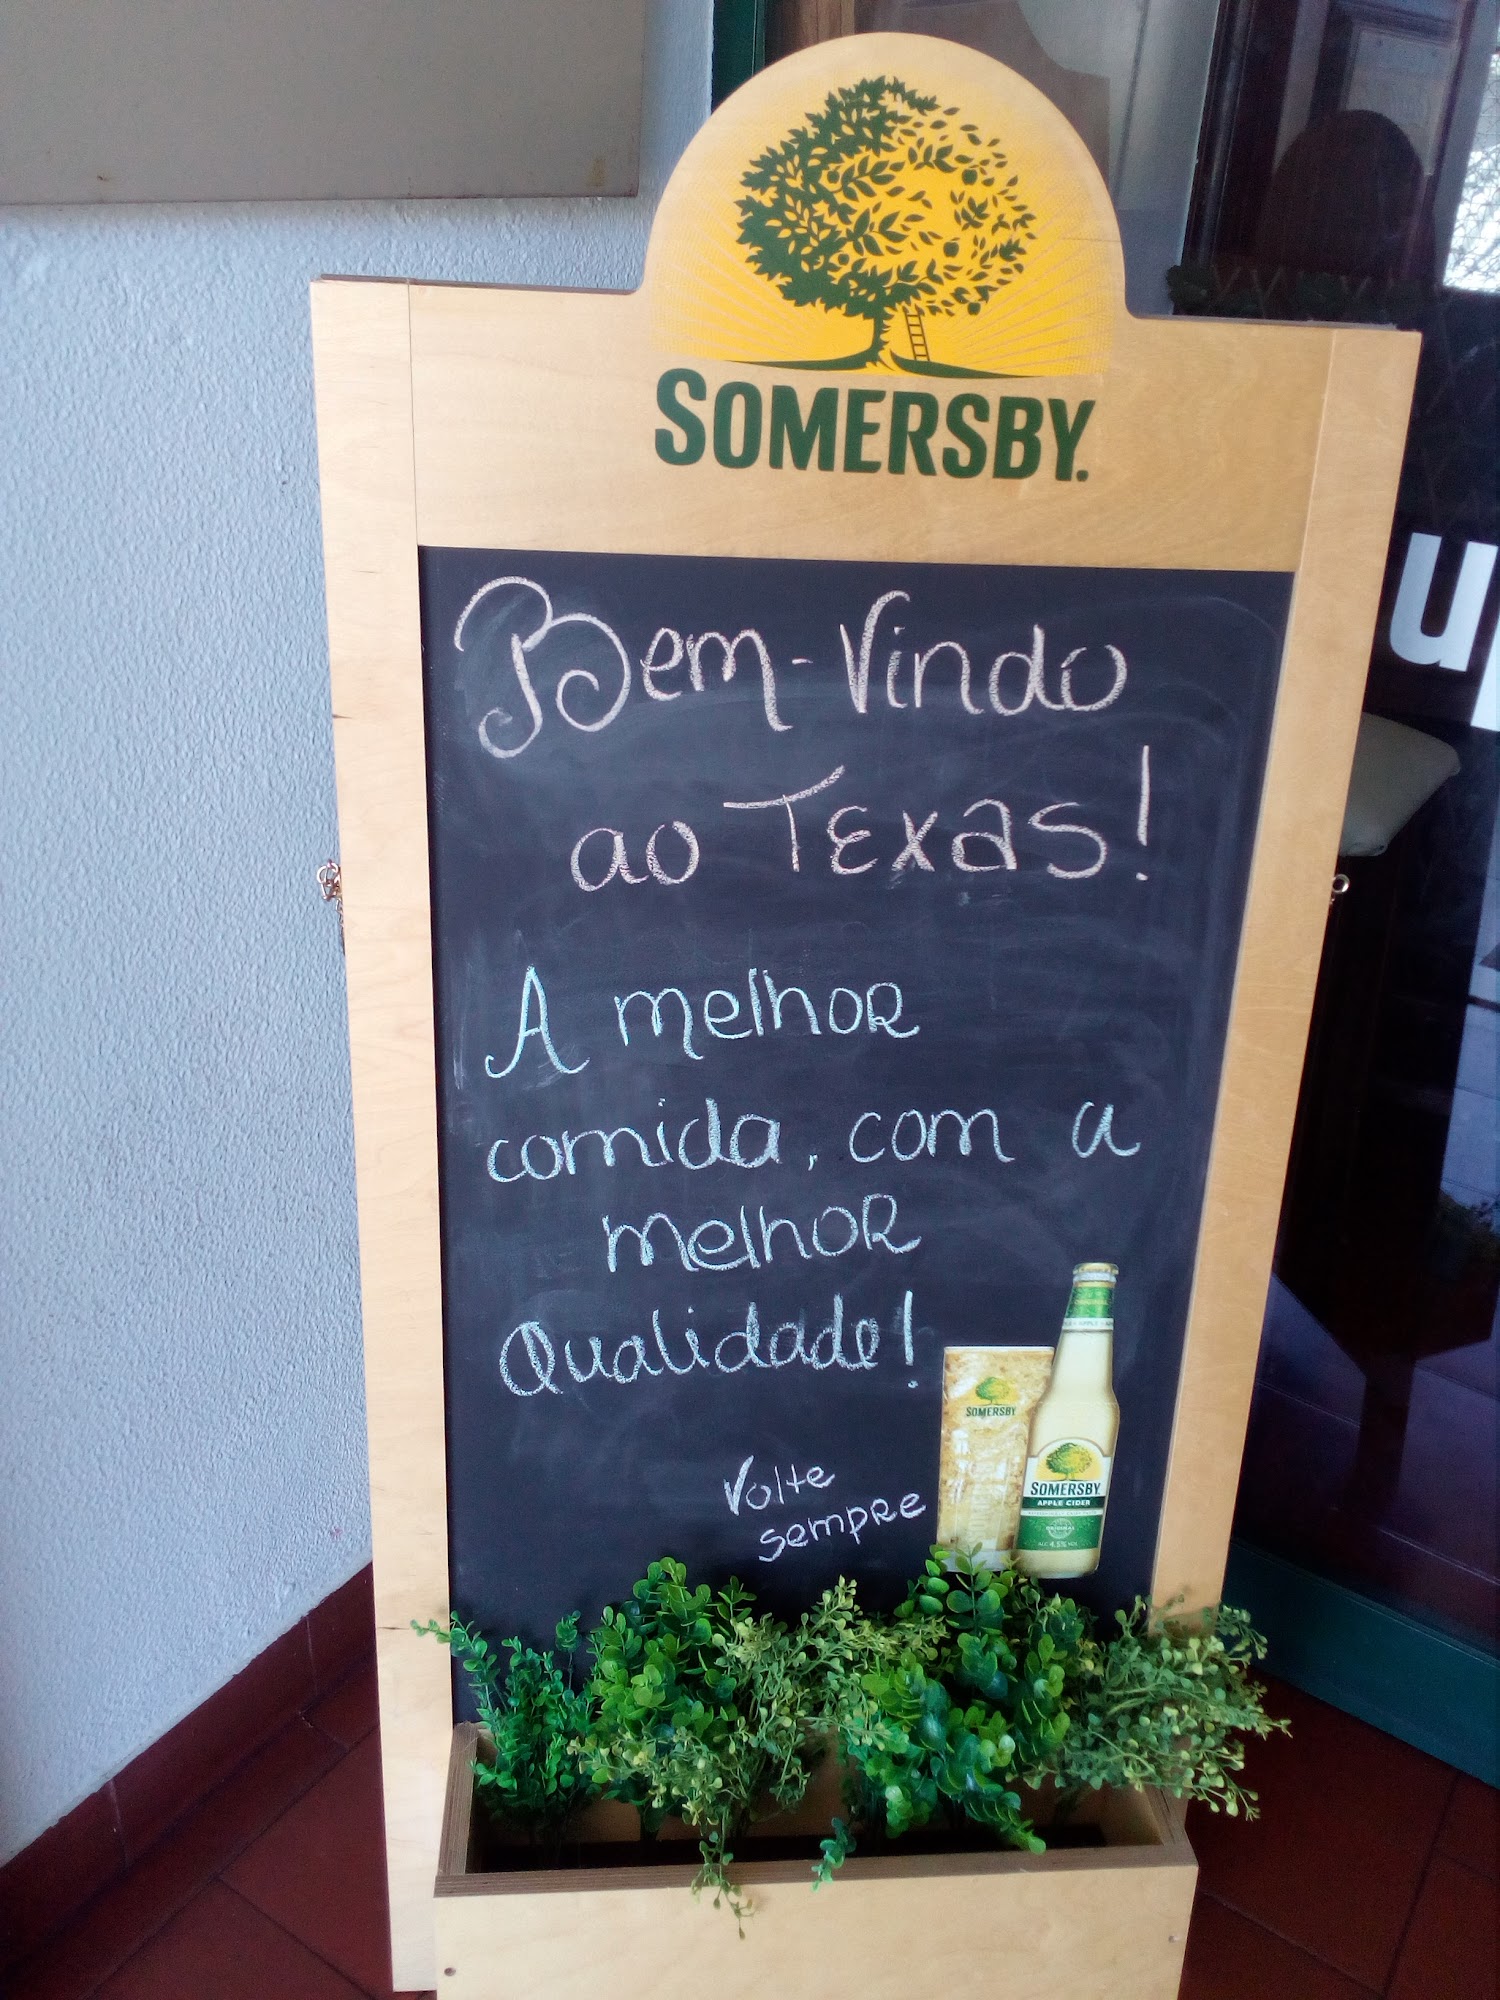 SOMERSBY.
Bem-Vindo
ao Texas!
A melhor
comida, com a
melhor
Qualidade!
Volte
sempre
SOMERSBY
ORIGINAL
APPLE
SOMERSBY
APPLE CIDER
ORIGINAL
ALC 4.5% VOL
u